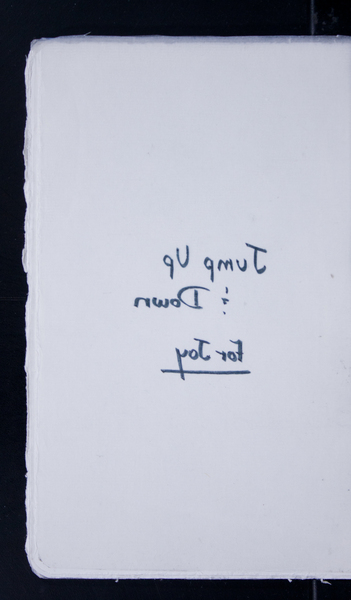 Jump Up
& Down
For Joy